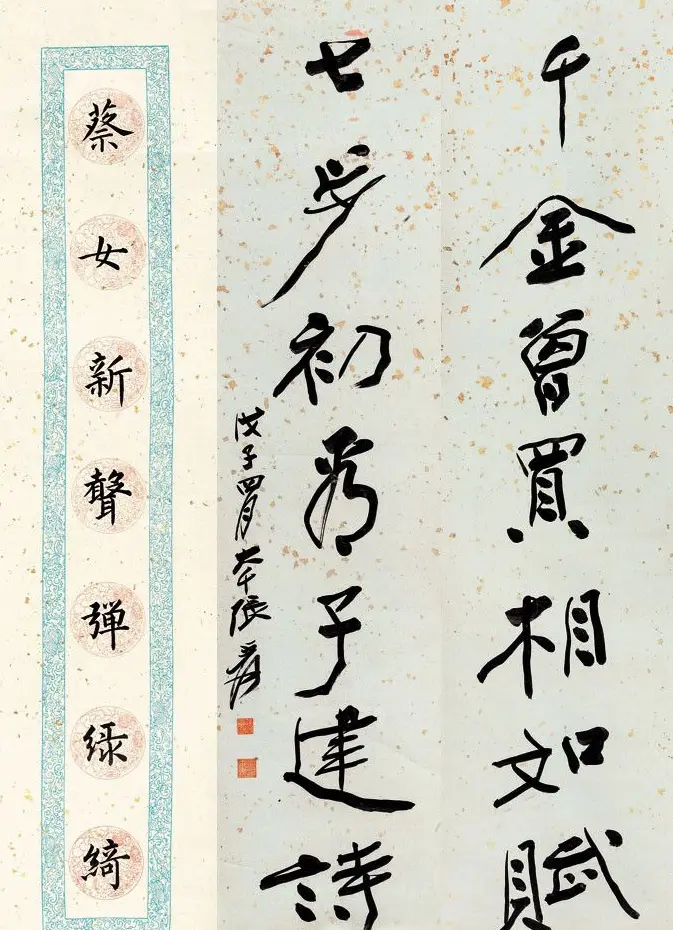 千金曾買相如賦
七步初看子建詩
戊子四月大千張爰
蔡女新聲弹緑綺